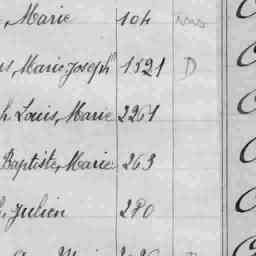 Marie 104
Marie Joseph 1521 D
h Louis, Marie 2261
Baptiste, Marie 263
Julien 280